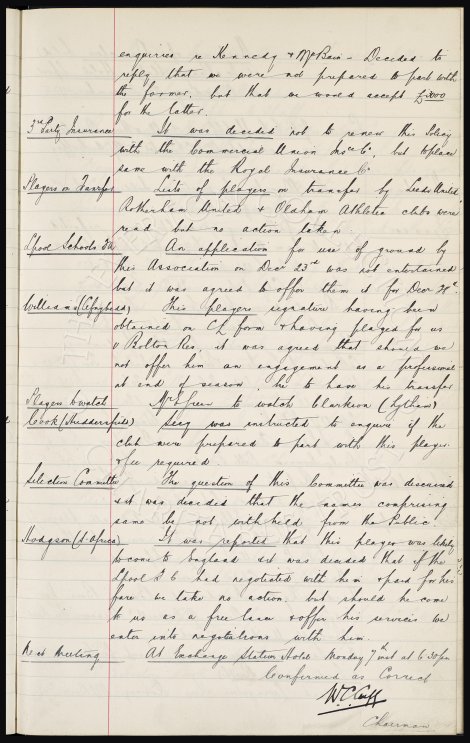 enquiries re Kennedy & McBain - Decided to
reply that we were not prepared to part with
the former, but that we would accept £3000
for the latter.
3rd Party Insurance It was decided not to renew this Policy
with the Commercial Union Insce Co, but to place
same with the Royal Insurance Co
Players on Transfer Lists of players on transfer by Leeds United
Rotherham United & Oldham Athletic clubs were
read but no action taken.
Lpool Schools FA An application for use of ground by
this Association on Decr 23rd was not entertained
but it was agreed to offer them it for Decr 28th.
Williams This players signature having been
obtained on CL form & having played for us
v Bolton Res, it was agreed that should we
not offer him an engagement as a professional
at end of season, he to have his transfer
Players to watch Mr Green to watch Clarkson (Lytham)
Cook (Huddersfield) Secy was instructed to enquire if the
club were prepared to part with this player
& fee required.
Selection Committee The question of this Committee was discussed
& it was decided that the names comprising
same be not withheld from the Public.
Hodgson (S. Africa) It was reported that this player was likely
to come to England & it was decided that if the
Lpool F C had negotiated with him & paid for his
fare we take no action, but should he come
to us as a free lance & offer his services we
enter into negotiations with him.
Next Meeting At Exchange Station Hotel Monday 7th inst at 6.30pm
Confirmed as Correct
W.C. Cuff
Chairman